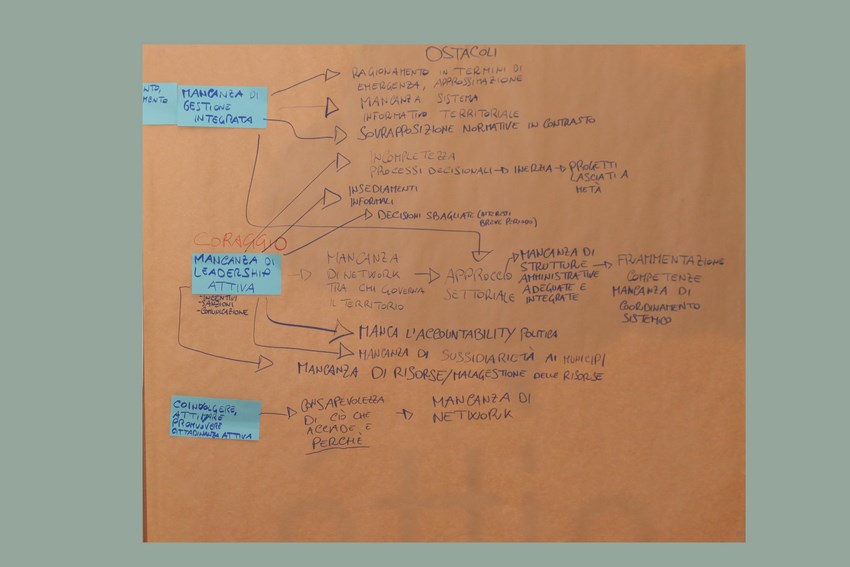 OSTACOLI
NTO,
MENTO
MANCANZA DI
GESTIONE
INTEGRATA
RAGIONAMENTO IN TERMINI DI
EMERGENZA, APPROSSIMAZIONE
MANCANZA SISTEMA
INFORMATIVO TERRITORIALE
SOVRAPPOSIZIONE NORMATIVE IN CONTRASTO
INCOMPLETEZZA
PROCESSI DECISIONALI → INERZIA → PROGETTI
LASCIATI A
METÀ
INSEDIAMENTI
INFORMALI
DECISIONI SBAGLIATE (
BREVE PERIODO)
CORAGGIO
MANCANZA DI
LEADERSHIP
ATTIVA
- INCENTIVI
- SANZIONI
- COMUNICAZIONE
MANCANZA
DI NETWORK
TRA CHI GOVERNA
IL TERRITORIO
APPROCCIO
SETTORIALE
MANCANZA DI
STRUTTURE
AMMINISTRATIVE
ADEGUATE E
INTEGRATE
FRAMMENTAZIONE
COMPETENZE
MANCANZA DI
COORDINAMENTO
SISTEMICO
MANCA L'ACCOUNTABILITY POLITICA
MANCANZA DI SUSSIDIARIETÀ AI MUNICIPI
MANCANZA DI RISORSE/MALAGESTIONE DELLE RISORSE
COINVOLGERE,
ATTIVARE
PROMUOVERE
CITTADINANZA ATTIVA
CONSAPEVOLEZZA
DI CIÒ CHE
ACCADE E
PERCHÈ
MANCANZA DI
NETWORK